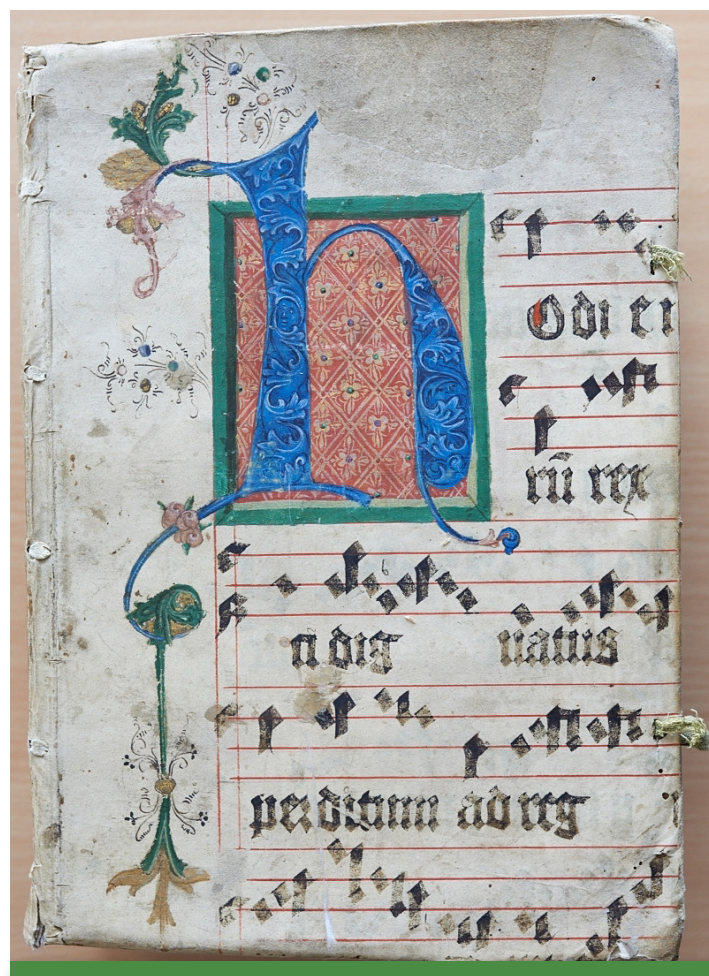 hOdi ei
rū rex
ci dig natus
perditum ad reg